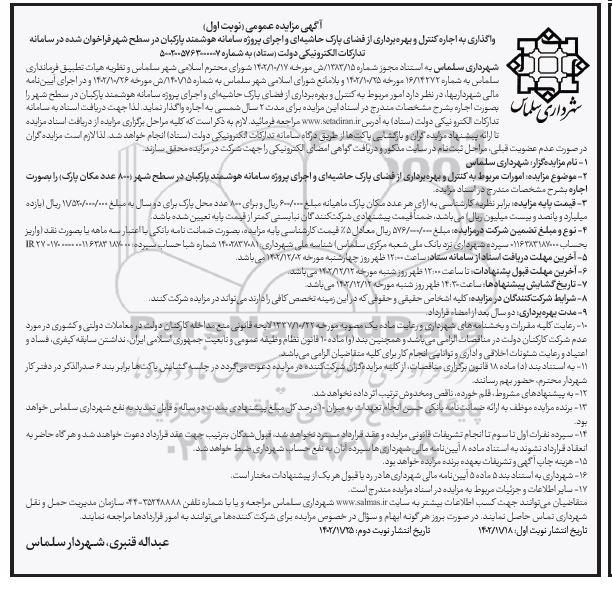 آگهی مزایده عمومی (نوبت اول)
واگذاری به اجاره کنترل و بهره‌برداری از فضای پارک حاشیه‌ای و اجرای پروژه سامانه هوشمند پارکبان در سطح شهر فراخوان شده در سامانه
تدارکات الکترونیکی دولت (ستاد) به شماره ۵۰۰۲۰۰۵۷۶۳۰۰۰۰۰۷
شهرداری سلماس به استناد مجوز شماره ۱۳۸۳/۱۵/ش مورخه ۱۴۰۲/۱۰/۱۷ شورای محترم اسلامی شهر سلماس و نظریه هیات تطبیق فرمانداری
سلماس به شماره ۱۶/۱۴۲۷۲ مورخه ۱۴۰۲/۱۰/۲۵ و بلامانع شورای اسلامی شهر سلماس به شماره ۱۴۰۱/۱۵/ش مورخه ۱۴۰۲/۱۰/۲۶ و در اجرای آیین‌نامه
مالی شهرداریها، در نظر دارد امور مربوط به کنترل و بهره‌برداری از فضای پارک حاشیه‌ای و اجرای پروژه سامانه هوشمند پارکبان در سطح شهر را
بصورت اجاره بشرح مشخصات مندرج در اسناد این مزایده برای مدت ۲ سال شمسی به اجاره واگذار نماید. لذا جهت دریافت اسناد به سامانه
تدارکات الکترونیکی دولت (ستاد) به آدرس www.setadiran.ir مراجعه فرمائید. لازم به ذکر است که کلیه مراحل برگزاری مزایده از دریافت اسناد مزایده
تا ارائه پیشنهاد مزایده گران و بازگشایی پاکت‌ها از طریق درگاه سامانه تدارکات الکترونیکی دولت (ستاد) انجام خواهد شد. لذا لازم است مزایده گران
در صورت عدم عضویت قبلی، مراحل ثبت‌نام در سایت مذکور و دریافت گواهی امضای الکترونیکی را جهت شرکت در مزایده محقق سازند.
۱- نام مزایده‌گزار: شهرداری سلماس
۲- موضوع مزایده: امورات مربوط به کنترل و بهره‌برداری از فضای پارک حاشیه‌ای و اجرای پروژه سامانه هوشمند پارکبان در سطح شهر (۸۰۰ عدد مکان پارک) را بصورت
اجاره بشرح مشخصات مندرج در اسناد مزایده.
۳- قیمت پایه مزایده: برابر نظریه کارشناسی به ازای هر عدد مکان پارک ماهیانه مبلغ ۶۰۰/۰۰۰ ریال و برای ۸۰۰ عدد محل پارک برای دو سال به مبلغ ۱۱/۵۲۰/۰۰۰/۰۰۰ ریال (یازده
میلیارد و پانصد و بیست میلیون ریال) می‌باشد، ضمناً قیمت پیشنهادی شرکت‌کنندگان نبایستی کمتر از قیمت پایه تعیین شده باشد.
۴- نوع و مبلغ تضمین شرکت در مزایده: مبلغ ۵۷۶/۰۰۰/۰۰۰ ریال معادل ۵٪ قیمت کارشناسی پایه مزایده، بصورت ضمانت نامه بانکی با اعتبار سه ماهه یا بصورت نقد (واریز
بحساب ۰۱۱۶۳۸۳۱۸۷۰۰۰ سپرده شهرداری نزد بانک ملی شعبه مرکزی سلماس) شناسه ملی شهرداری: ۱۴۰۰۲۸۳۷۰۸۱ شماره شبا حساب سپرده:
۵- آخرین مهلت دریافت اسناد از سامانه ستاد: ساعت ۱۲:۰۰ ظهر روز چهارشنبه مورخه ۱۴۰۲/۱۲/۰۲ می‌باشد.
۶- آخرین مهلت قبول پیشنهادات: تا ساعت ۱۲:۰۰ ظهر روز شنبه مورخه ۱۴۰۲/۱۲/۱۲ می‌باشد.
۷- تاریخ گشایش پیشنهادها: ساعت ۱۴:۳۰ ظهر روز شنبه مورخه ۱۴۰۲/۱۲/۱۲ می‌باشد.
۸- شرایط شرکت‌کنندگان در مزایده: کلیه اشخاص حقیقی و حقوقی که در این زمینه تخصص کافی را دارند می‌تواند در مزایده شرکت کنند.
۹- مدت بهره‌برداری: دو سال بعد از امضاء قرارداد.
۱۰- رعایت کلیه مقررات و بخشنامه های شهرداری و رعایت ماده یک مصوبه مورخه ۱۳۳۷/۱۰/۲۲ لایحه قانونی منع مداخله کارکنان دولت در معاملات دولتی و کشوری در مورد
عدم شرکت کارکنان دولت در مناقصات الزامی می‌باشد و همچنین بند (و) ماده ۱۰ قانون نظام وظیفه عمومی و تابعیت جمهوری اسلامی ایران، نداشتن سابقه کیفری، فساد و
اعتیاد و رعایت شئونات اخلاقی و اداری و توانایی انجام کار برای کلیه متقاضیان الزامی می‌باشد.
۱۱- به استناد بند (د) ماده ۱۸ قانون برگزاری مناقصات، از کلیه مزایده‌گران شرکت‌کننده در مزایده دعوت می‌گردد در جلسه گشایش پاکت‌ها برابر بند ۶ صدرالذکر در دفتر کار
شهردار محترم، حضور بهم رسانند.
۱۲- به پیشنهادهای مشروط، قلم خورده، ناقص و مخدوش ترتیب اثر داده نخواهد شد.
۱۳- برنده مزایده موظف به ارائه ضمانت‌نامه بانکی حسن انجام تعهدات به میزان ۱۰ درصد کل مبلغ پیشنهادی بمدت دو ساله و قابل تمدید به نفع شهرداری سلماس خواهد
بود.
۱۴- سپرده نفرات اول تا سوم تا انجام تشریفات قانونی مزایده و عقد قرارداد مسترد نخواهد شد، قبول‌شدگان بترتیب جهت عقد قرارداد دعوت خواهند شد و هر گاه حاضر به
انعقاد قرارداد نشوند به استناد ماده ۸ آیین‌نامه مالی شهرداری ها سپرده آنان به نفع حساب شهرداری ضبط خواهد شد.
۱۵- هزینه چاپ آگهی و تشریفات بعهده برنده مزایده خواهد بود.
۱۶- شهرداری به استناد بند ۵ ماده ۵ آیین‌نامه مالی شهرداری ها در رد یا قبول هر یک از پیشنهادات مختار است.
۱۷- سایر اطلاعات و جزئیات مربوط به مزایده در اسناد مزایده مندرج است.
متقاضیان می‌توانند جهت کسب اطلاعات بیشتر به سایت www.salmas.ir شهرداری سلماس مراجعه و یا با شماره تلفن ۳۵۲۴۸۸۸۸-۰۴۴ سازمان مدیریت حمل و نقل
شهرداری تماس حاصل نمایند. در صورت بروز هر گونه ابهام و سؤال در خصوص مزایده برای شرکت کننده‌ها می‌توانند به امور قراردادها مراجعه نمایند.
تاریخ انتشار نوبت اول: ۱۴۰۲/۱۱/۱۸ تاریخ انتشار نوبت دوم: ۱۴۰۲/۱۱/۲۵
عبداله قنبری، شهردار سلماس
شهرداری سلماس